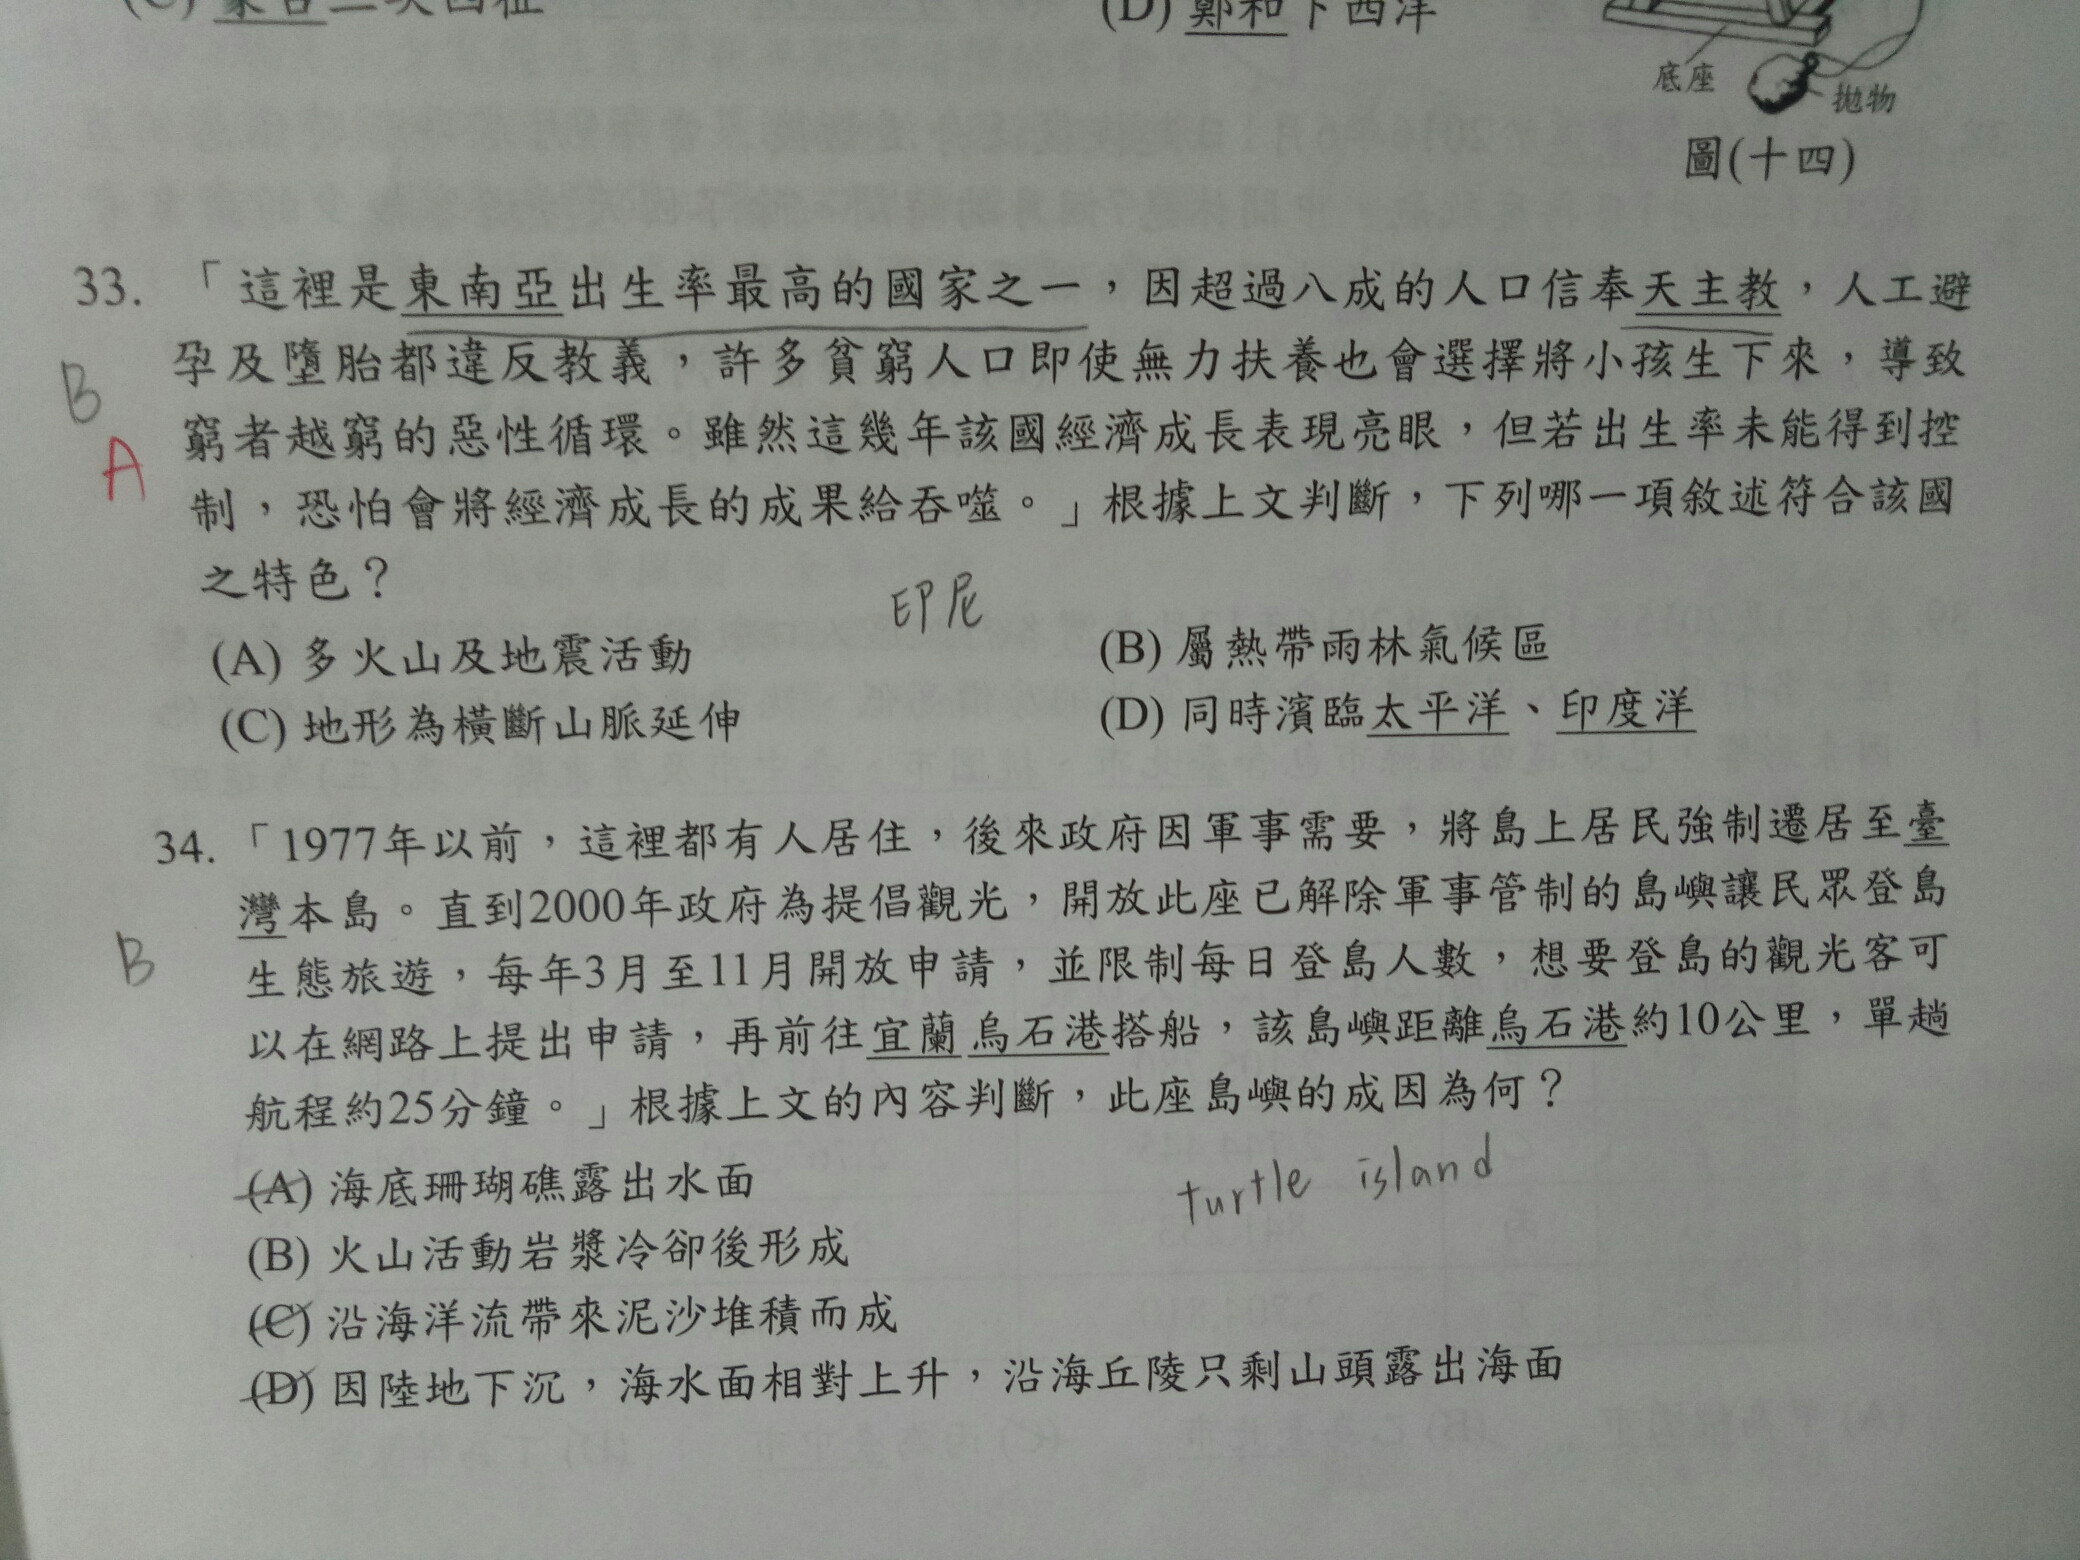 (D) 鄭和下西洋
底座
拋物
圖(十四)
33. 「這裡是東南亞出生率最高的國家之一，因超過八成的人口信奉天主教，人工避
孕及墮胎都違反教義，許多貧窮人口即使無力扶養也會選擇將小孩生下來，導致
B
窮者越窮的惡性循環。雖然這幾年該國經濟成長表現亮眼，但若出生率未能得到控
A
制，恐怕會將經濟成長的成果給吞噬。」根據上文判斷，下列哪一項敘述符合該國
之特色？
印尼
(A) 多火山及地震活動 (B) 屬熱帶雨林氣候區
(C) 地形為橫斷山脈延伸 (D) 同時濱臨太平洋、印度洋
34. 「1977年以前，這裡都有人居住，後來政府因軍事需要，將島上居民強制遷居至臺
灣本島。直到2000年政府為提倡觀光，開放此座已解除軍事管制的島嶼讓民眾登島
B
生態旅遊，每年3月至11月開放申請，並限制每日登島人數，想要登島的觀光客可
以在網路上提出申請，再前往宜蘭烏石港搭船，該島嶼距離烏石港約10公里，單趟
航程約25分鐘。」根據上文的內容判斷，此座島嶼的成因為何？
turtle island
(A) 海底珊瑚礁露出水面
(B) 火山活動岩漿冷卻後形成
(C) 沿海洋流帶來泥沙堆積而成
(D) 因陸地下沉，海水面相對上升，沿海丘陵只剩山頭露出海面